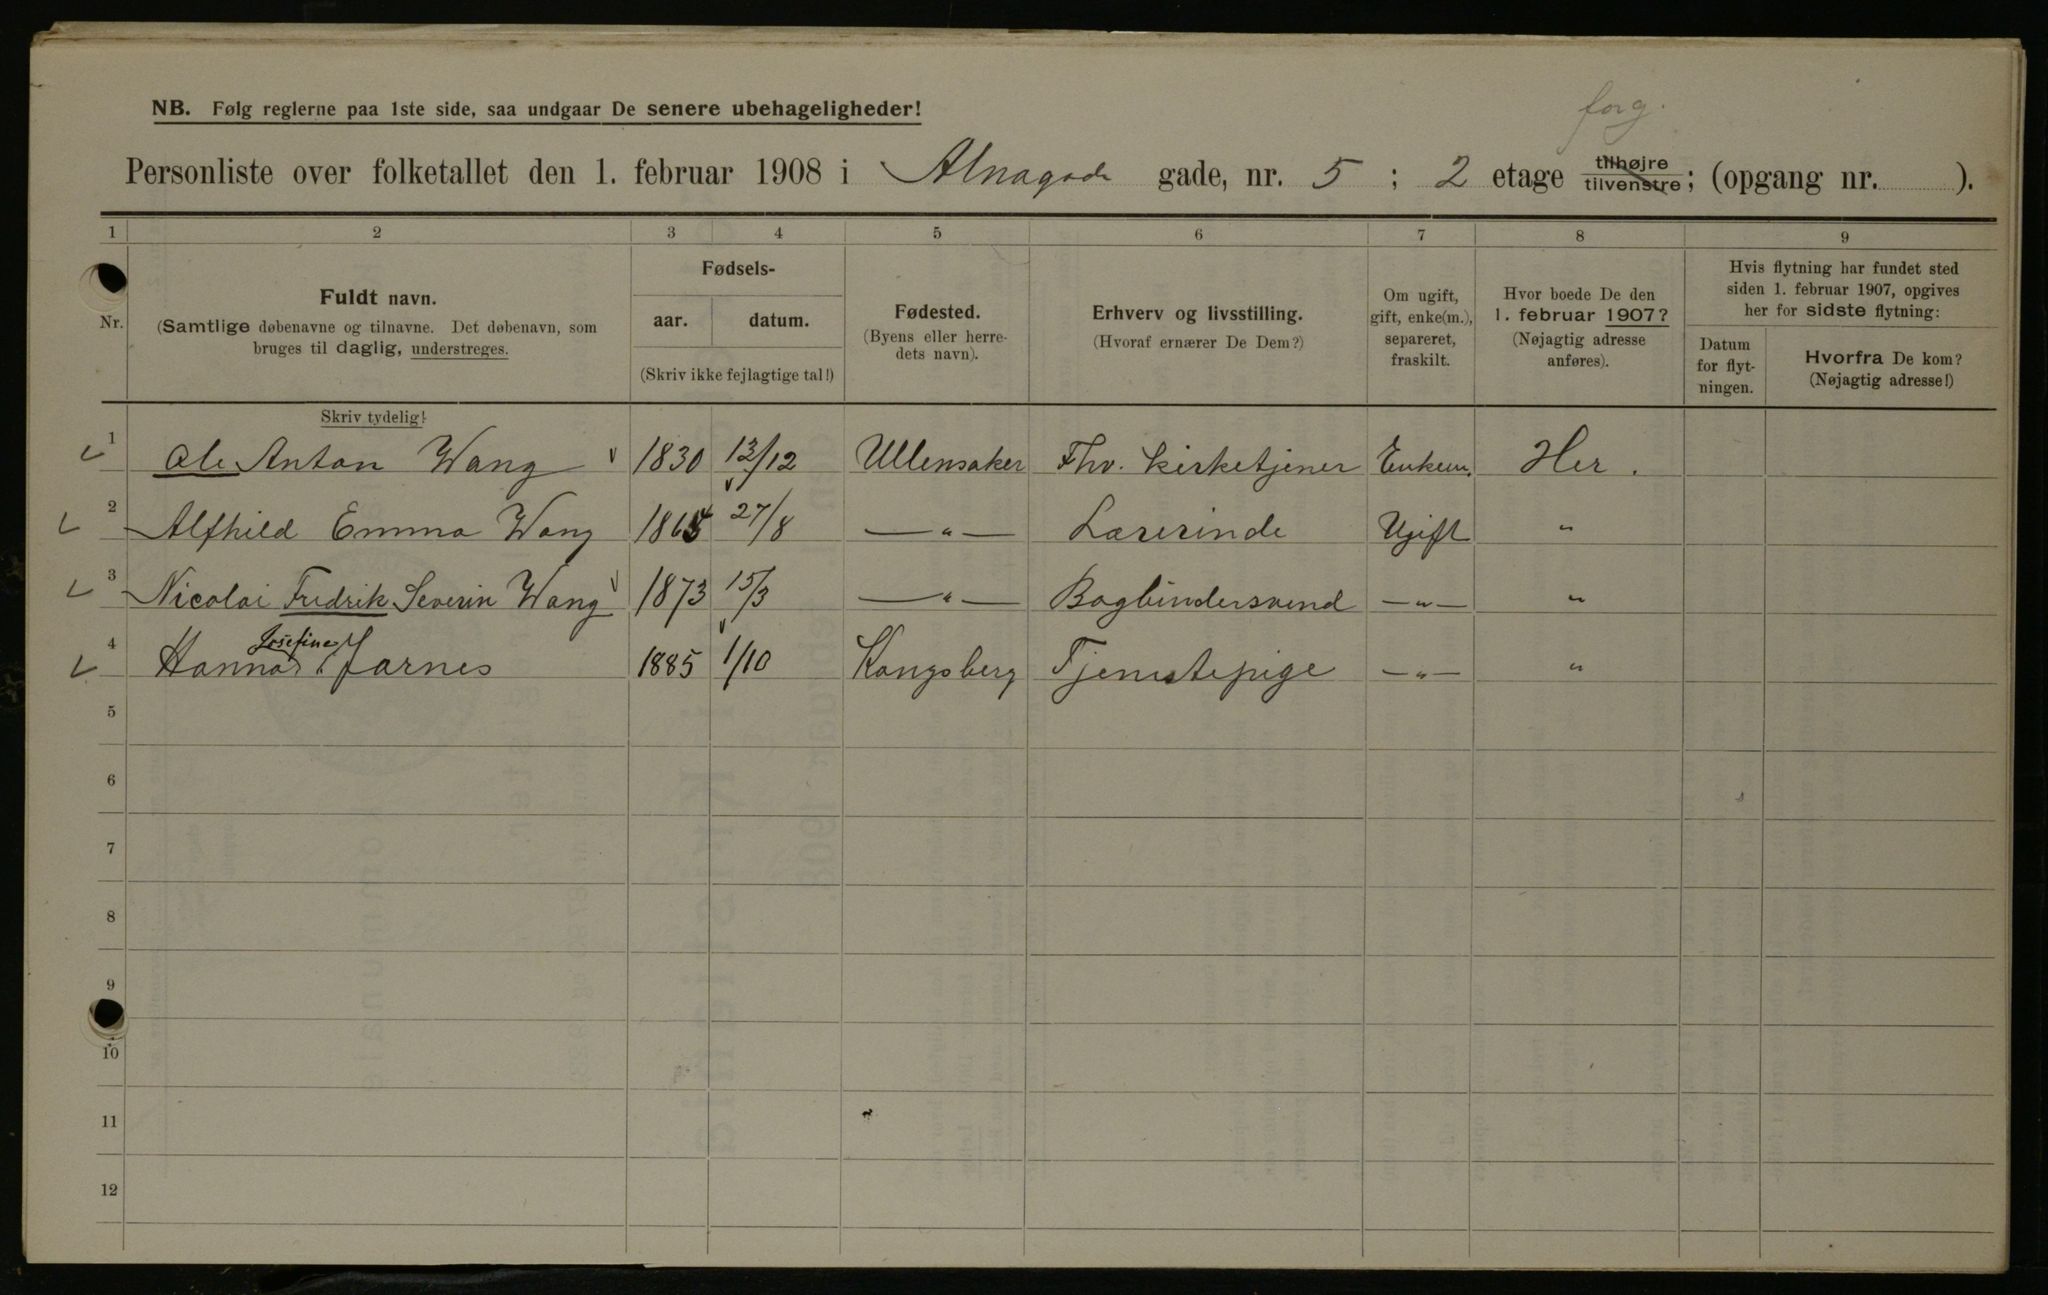 forg.
NB. Følg reglerne paa 1ste side, saa undgaar De senere ubehageligheder!
Personliste over folketallet den 1. februar 1908 i Alnagade gade, nr. 5 ; 2 etage tilhøjre tilvenstre; (opgang nr. ).
1 2 3 4 5 6 7 8 9
Nr.
Fuldt navn.
(Samtlige døbenavne og tilnavne. Det døbenavn, som
bruges til daglig, understreges.
Fødsels-
aar. datum.
(Skriv ikke fejlagtige tal!)
Fødested.
(Byens eller herre-
dets navn).
Erhverv og livsstilling.
(Hvoraf ernærer De Dem?)
Om ugift,
gift, enke(m.),
separeret,
fraskilt.
Hvor boede De den
1. februar 1907?
(Nøjagtig adresse
anføres).
Hvis flytning har fundet sted
siden 1. februar 1907, opgives
her for sidste flytning:
Datum
for flyt-
ningen.
Hvorfra De kom?
(Nøjagtig adresse!)
Skriv tydelig!
1 Ole Anton Wang 1830 13/12 Ullensaker Fhv. kirketjener Enkem. Her.
2 Alfhild Emma Wang 1864 27/8 — " — Lærerinde Ugift "
3 Nicolai Fredrik Severin Wang 1873 15/3 — " — Bogbindersvend — " — "
4 Hanna Josefine Jarnes 1885 1/10 Kongsberg Tjenestepige — " — "
5
6
7
8
9
10
11
12